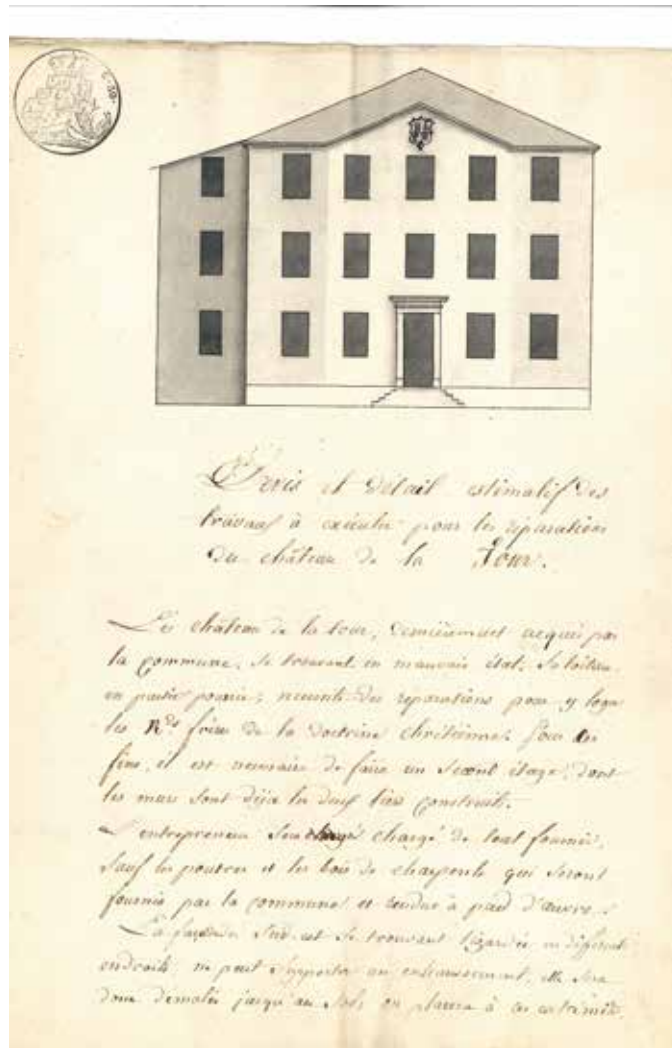 C. 50.
Devis et détail estimatif des
travaux à exécuter pour les réparations
du château de la Tour.
Le château de la tour, dernièrement acquis par
la commune, se trouvant en mauvais état, sa toiture
en partie pourrie, nécessite des réparations pour y loger
les Rds frères de la doctrine chrétienne. Pour ces
fins, il est nécessaire de faire un second étage, dont
les murs sont déjà les deux tiers construits.
L'entrepreneur sera chargé de tout fournir,
sauf les poutres et les bois de charpente qui seront
fournis par la commune et rendus à pied d'œuvre.
La façade Sud-est se trouvant lézardée en différents
endroits, ne peut supporter un exhaussement, elle sera
donc démolie jusqu'au sol, on placera à ces extrémités